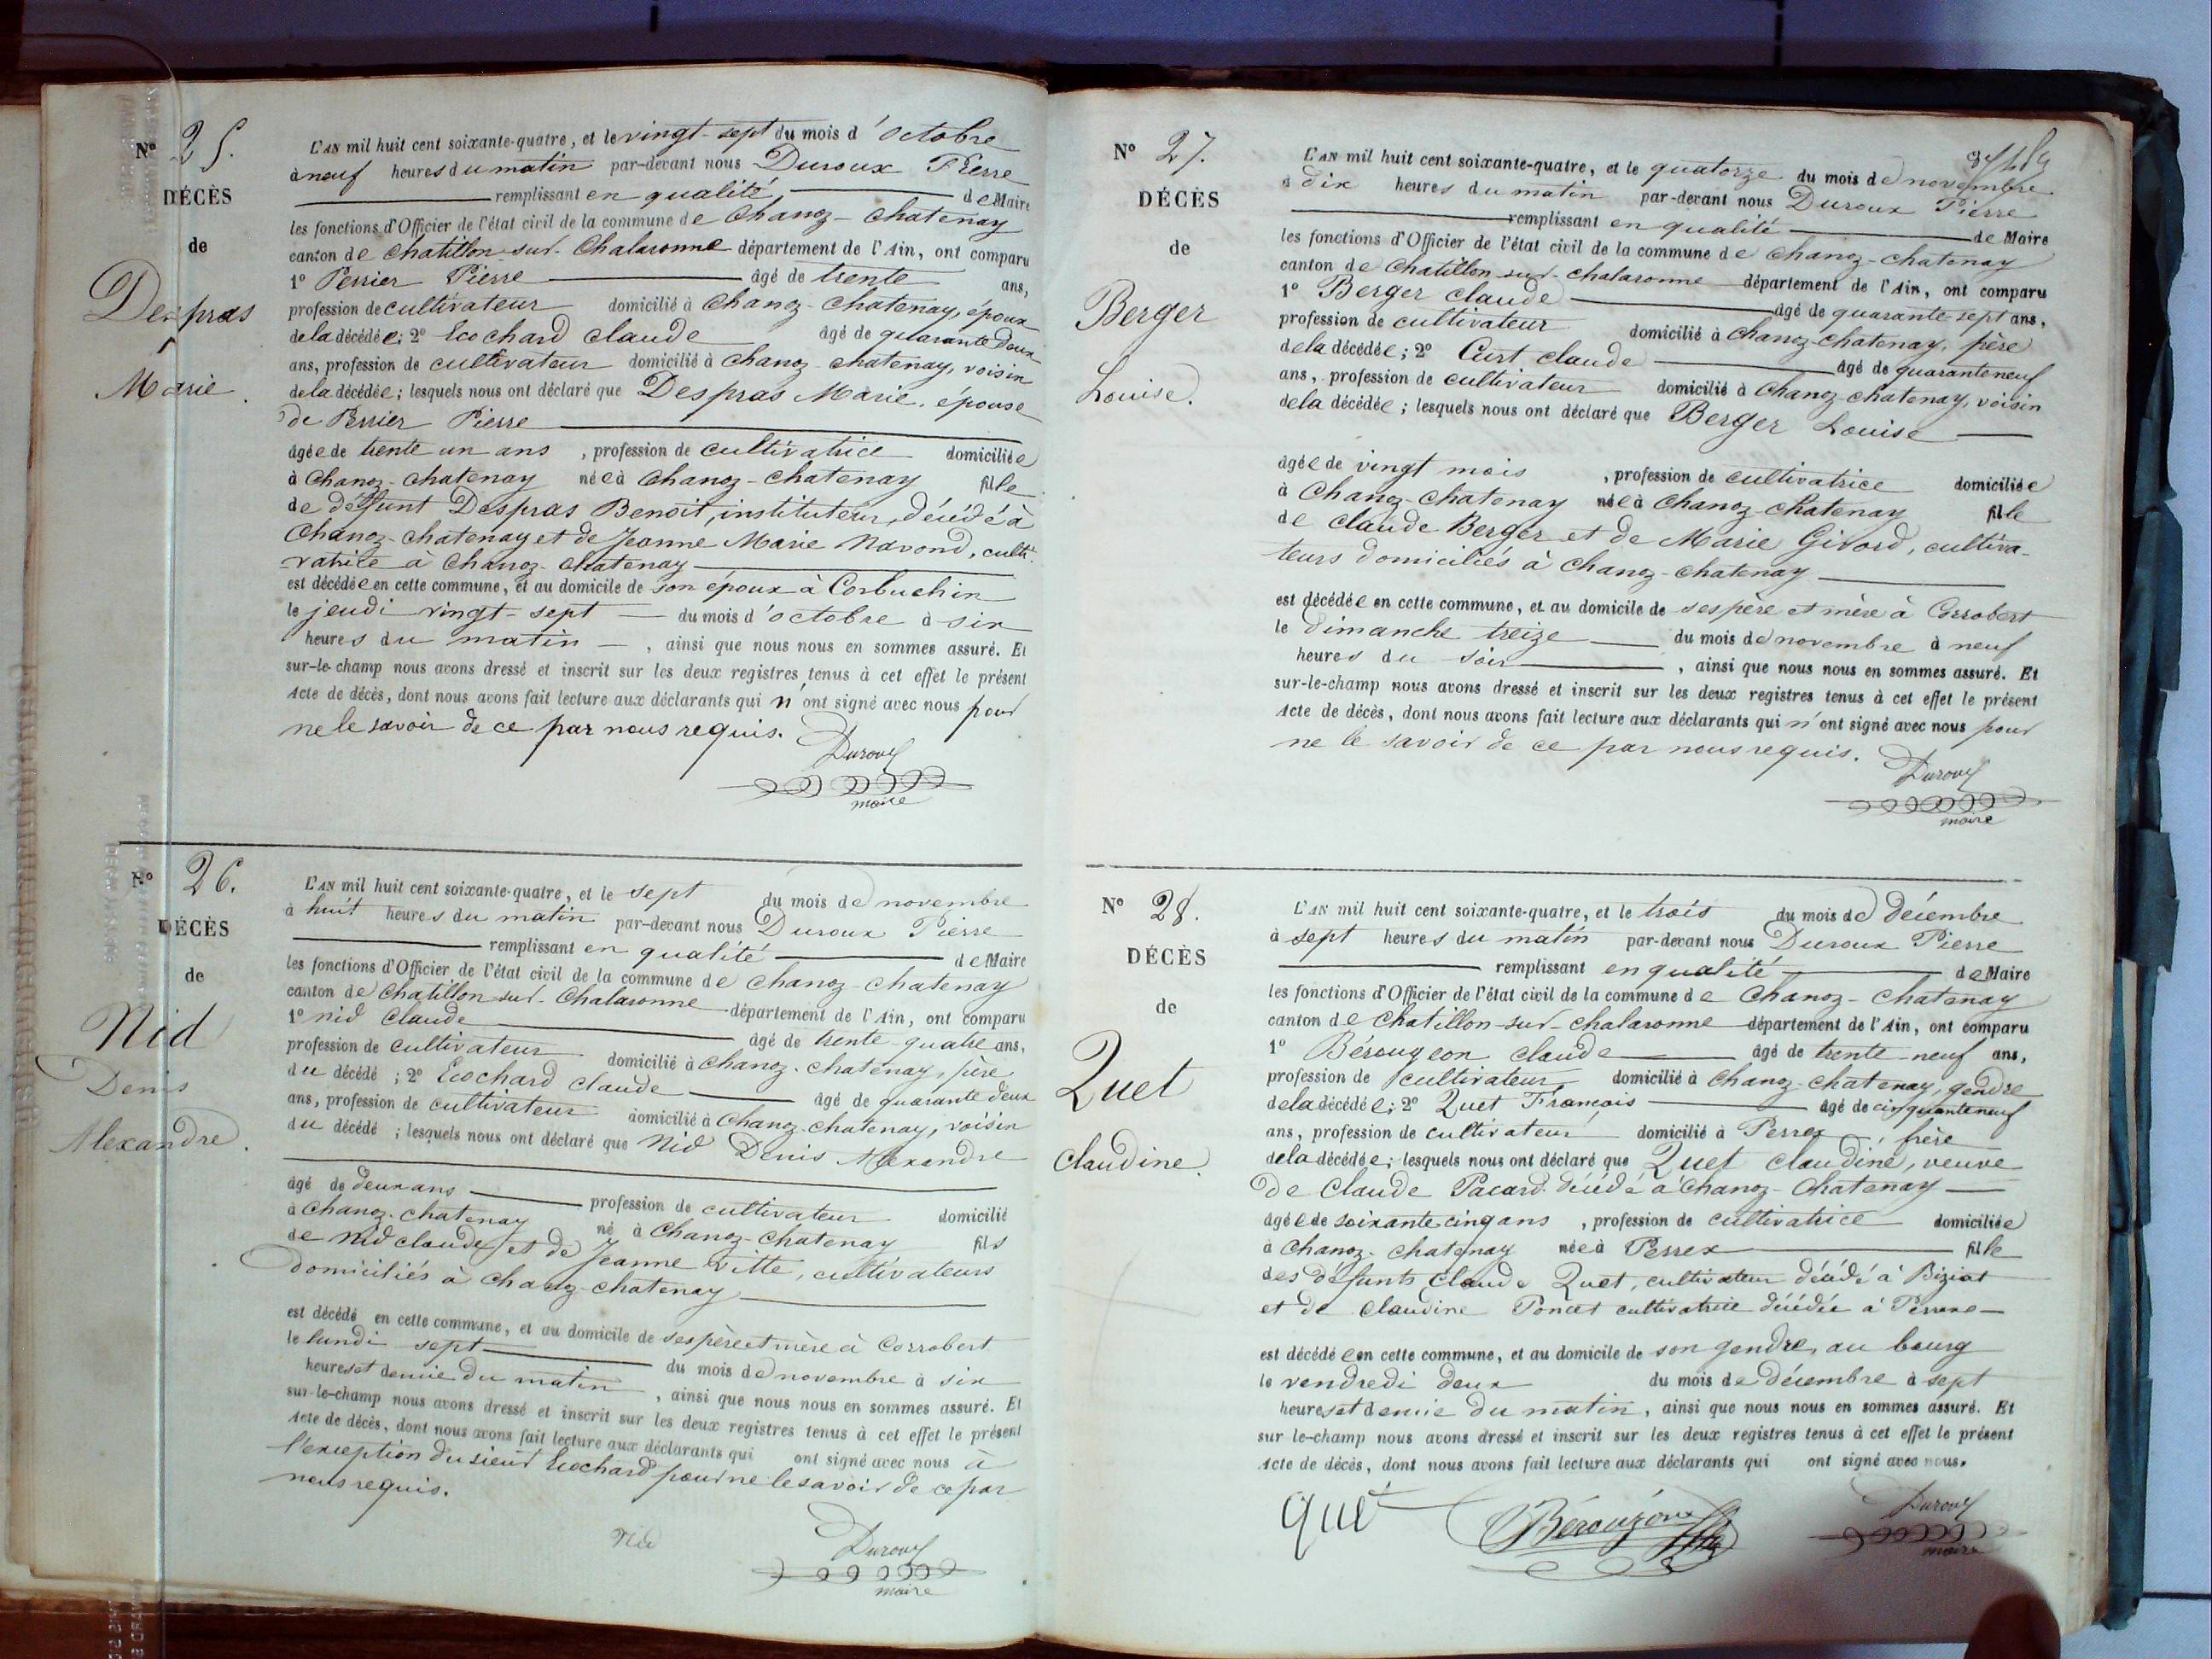 N° 25.
DÉCÈS
de
Despras
Marie.
L'AN mil huit cent soixante-quatre, et le vingt-sept du mois d'octobre
à neuf heures du matin par-devant nous Duroux Pierre
remplissant en qualité de Maire
les fonctions d'Officier de l'état civil de la commune de Chanoz-Chatenay
canton de Chatillon-sur-Chalaronne département de l'Ain, ont comparu
1° Perrier Pierre âgé de trente ans,
profession de cultivateur domicilié à Chanoz-Chatenay, époux
de la décédée; 2° Ecochard claude âgé de quarante deux
ans, profession de cultivateur domicilié à Chanoz-chatenay, voisin
de la décédée; lesquels nous ont déclaré que Despras Marie, épouse
de Perrier Pierre
âgée de trente un ans, profession de cultivatrice domiciliée
à Chanoz-chatenay née à Chanoz-chatenay fille
de défunt Despras Benoit, instituteur, décédé à
Chanoz-chatenay et de Jeanne Marie Navond, culti-
vatrice à Chanoz-chatenay
est décédée en cette commune, et au domicile de son époux à Corbuchin
le jeudi vingt-sept du mois d'octobre à six
heures du matin, ainsi que nous nous en sommes assuré. Et
sur-le-champ nous avons dressé et inscrit sur les deux registres tenus à cet effet le présent
Acte de décès, dont nous avons fait lecture aux déclarants qui n'ont signé avec nous pour
ne le savoir de ce par nous requis.
Duroux
maire
N° 26.
DÉCÈS
de
Nid
Denis
Alexandre.
L'AN mil huit cent soixante-quatre, et le sept du mois de novembre
à huit heures du matin par-devant nous Duroux Pierre
remplissant en qualité de Maire
les fonctions d'Officier de l'état civil de la commune de Chanoz-chatenay
canton de Chatillon-sur-Chalaronne département de l'Ain, ont comparu
1° nid Claude âgé de trente-quatre ans,
profession de cultivateur domicilié à Chanoz-chatenay, père
du décédé; 2° Ecochard Claude âgé de quarante deux
ans, profession de cultivateur domicilié à Chanoz-chatenay, voisin
du décédé; lesquels nous ont déclaré que Nid Denis Alexandre
âgé de deux ans profession de cultivateur domicilié
à Chanoz-chatenay né à Chanoz-chatenay fils
de nid claude et de Jeanne Vitte, cultivateurs
domiciliés à Chanoz-chatenay
est décédé en cette commune, et au domicile de ses père et mère à Corrobert
le lundi sept du mois de novembre à six
heures et demie du matin, ainsi que nous nous en sommes assuré. Et
sur-le-champ nous avons dressé et inscrit sur les deux registres tenus à cet effet le présent
Acte de décès, dont nous avons fait lecture aux déclarants qui ont signé avec nous à
l'exception du sieur Ecochard pour ne le savoir de ce par
nous requis.
Nid
Duroux
maire
N° 27.
DÉCÈS
de
Berger
Louise.
L'AN mil huit cent soixante-quatre, et le quatorze du mois de novembre
à dix heures du matin par-devant nous Duroux Pierre
remplissant en qualité de Maire
les fonctions d'Officier de l'état civil de la commune de Chanoz-chatenay
canton de Chatillon-sur-chalaronne département de l'Ain, ont comparu
1° Berger claude âgé de quarante sept ans,
profession de cultivateur domicilié à Chanoz-chatenay, père
de la décédée; 2° Curt claude âgé de quarante neuf
ans, profession de cultivateur domicilié à Chanoz-chatenay, voisin
de la décédée; lesquels nous ont déclaré que Berger Louise
âgée de vingt mois, profession de cultivatrice domiciliée
à Chanoz-chatenay née à Chanoz-chatenay fille
de claude Berger et de Marie Givord, cultiva-
teurs domiciliés à Chanoz-chatenay
est décédée en cette commune, et au domicile de ses père et mère à Corrobert
le Dimanche treize du mois de novembre à neuf
heures du soir, ainsi que nous nous en sommes assuré. Et
sur-le-champ nous avons dressé et inscrit sur les deux registres tenus à cet effet le présent
Acte de décès, dont nous avons fait lecture aux déclarants qui n'ont signé avec nous pour
ne le savoir de ce par nous requis.
Duroux
maire
N° 28.
DÉCÈS
de
Quet
Claudine.
L'AN mil huit cent soixante-quatre, et le trois du mois de décembre
à sept heures du matin par-devant nous Duroux Pierre
remplissant en qualité de Maire
les fonctions d'Officier de l'état civil de la commune de Chanoz-chatenay
canton de Chatillon-sur-chalaronne département de l'Ain, ont comparu
1° Bérougeon claude âgé de trente-neuf ans,
profession de cultivateur, domicilié à Chanoz-chatenay, gendre
de la décédée; 2° Quet François âgé de cinquante neuf
ans, profession de cultivateur domicilié à Perrex, frère
de la décédée; lesquels nous ont déclaré que Quet claudine, veuve
de Claude Pacard décédé à Chanoz-Chatenay
âgée de soixante cinq ans, profession de cultivatrice domiciliée
à Chanoz-chatenay née à Perrex fille
des défunts Claude Quet, cultivateur décédé à Biziat
et de Claudine Poncet cultivatrice décédée à
est décédée en cette commune, et au domicile de son gendre, au bourg
le vendredi deux du mois de décembre à sept
heures et demie du matin, ainsi que nous nous en sommes assuré. Et
sur le-champ nous avons dressé et inscrit sur les deux registres tenus à cet effet le présent
Acte de décès, dont nous avons fait lecture aux déclarants qui ont signé avec nous.
quet
Bérougeon
Duroux
maire